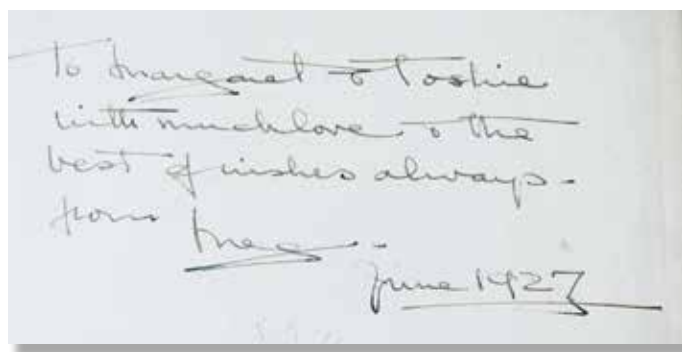 To Margaret & Toshie
with much love & the
best of wishes always -
from Meg -
June 1927